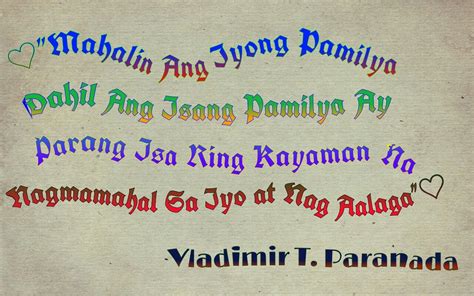 ♡"Mahalin Ang Iyong Pamilya
Dahil Ang Isang Pamilya Ay
Parang Isa Ring Kayaman Na
Nagmamahal Sa Iyo at Nag Aalaga"♡
-Vladimir T. Paranada